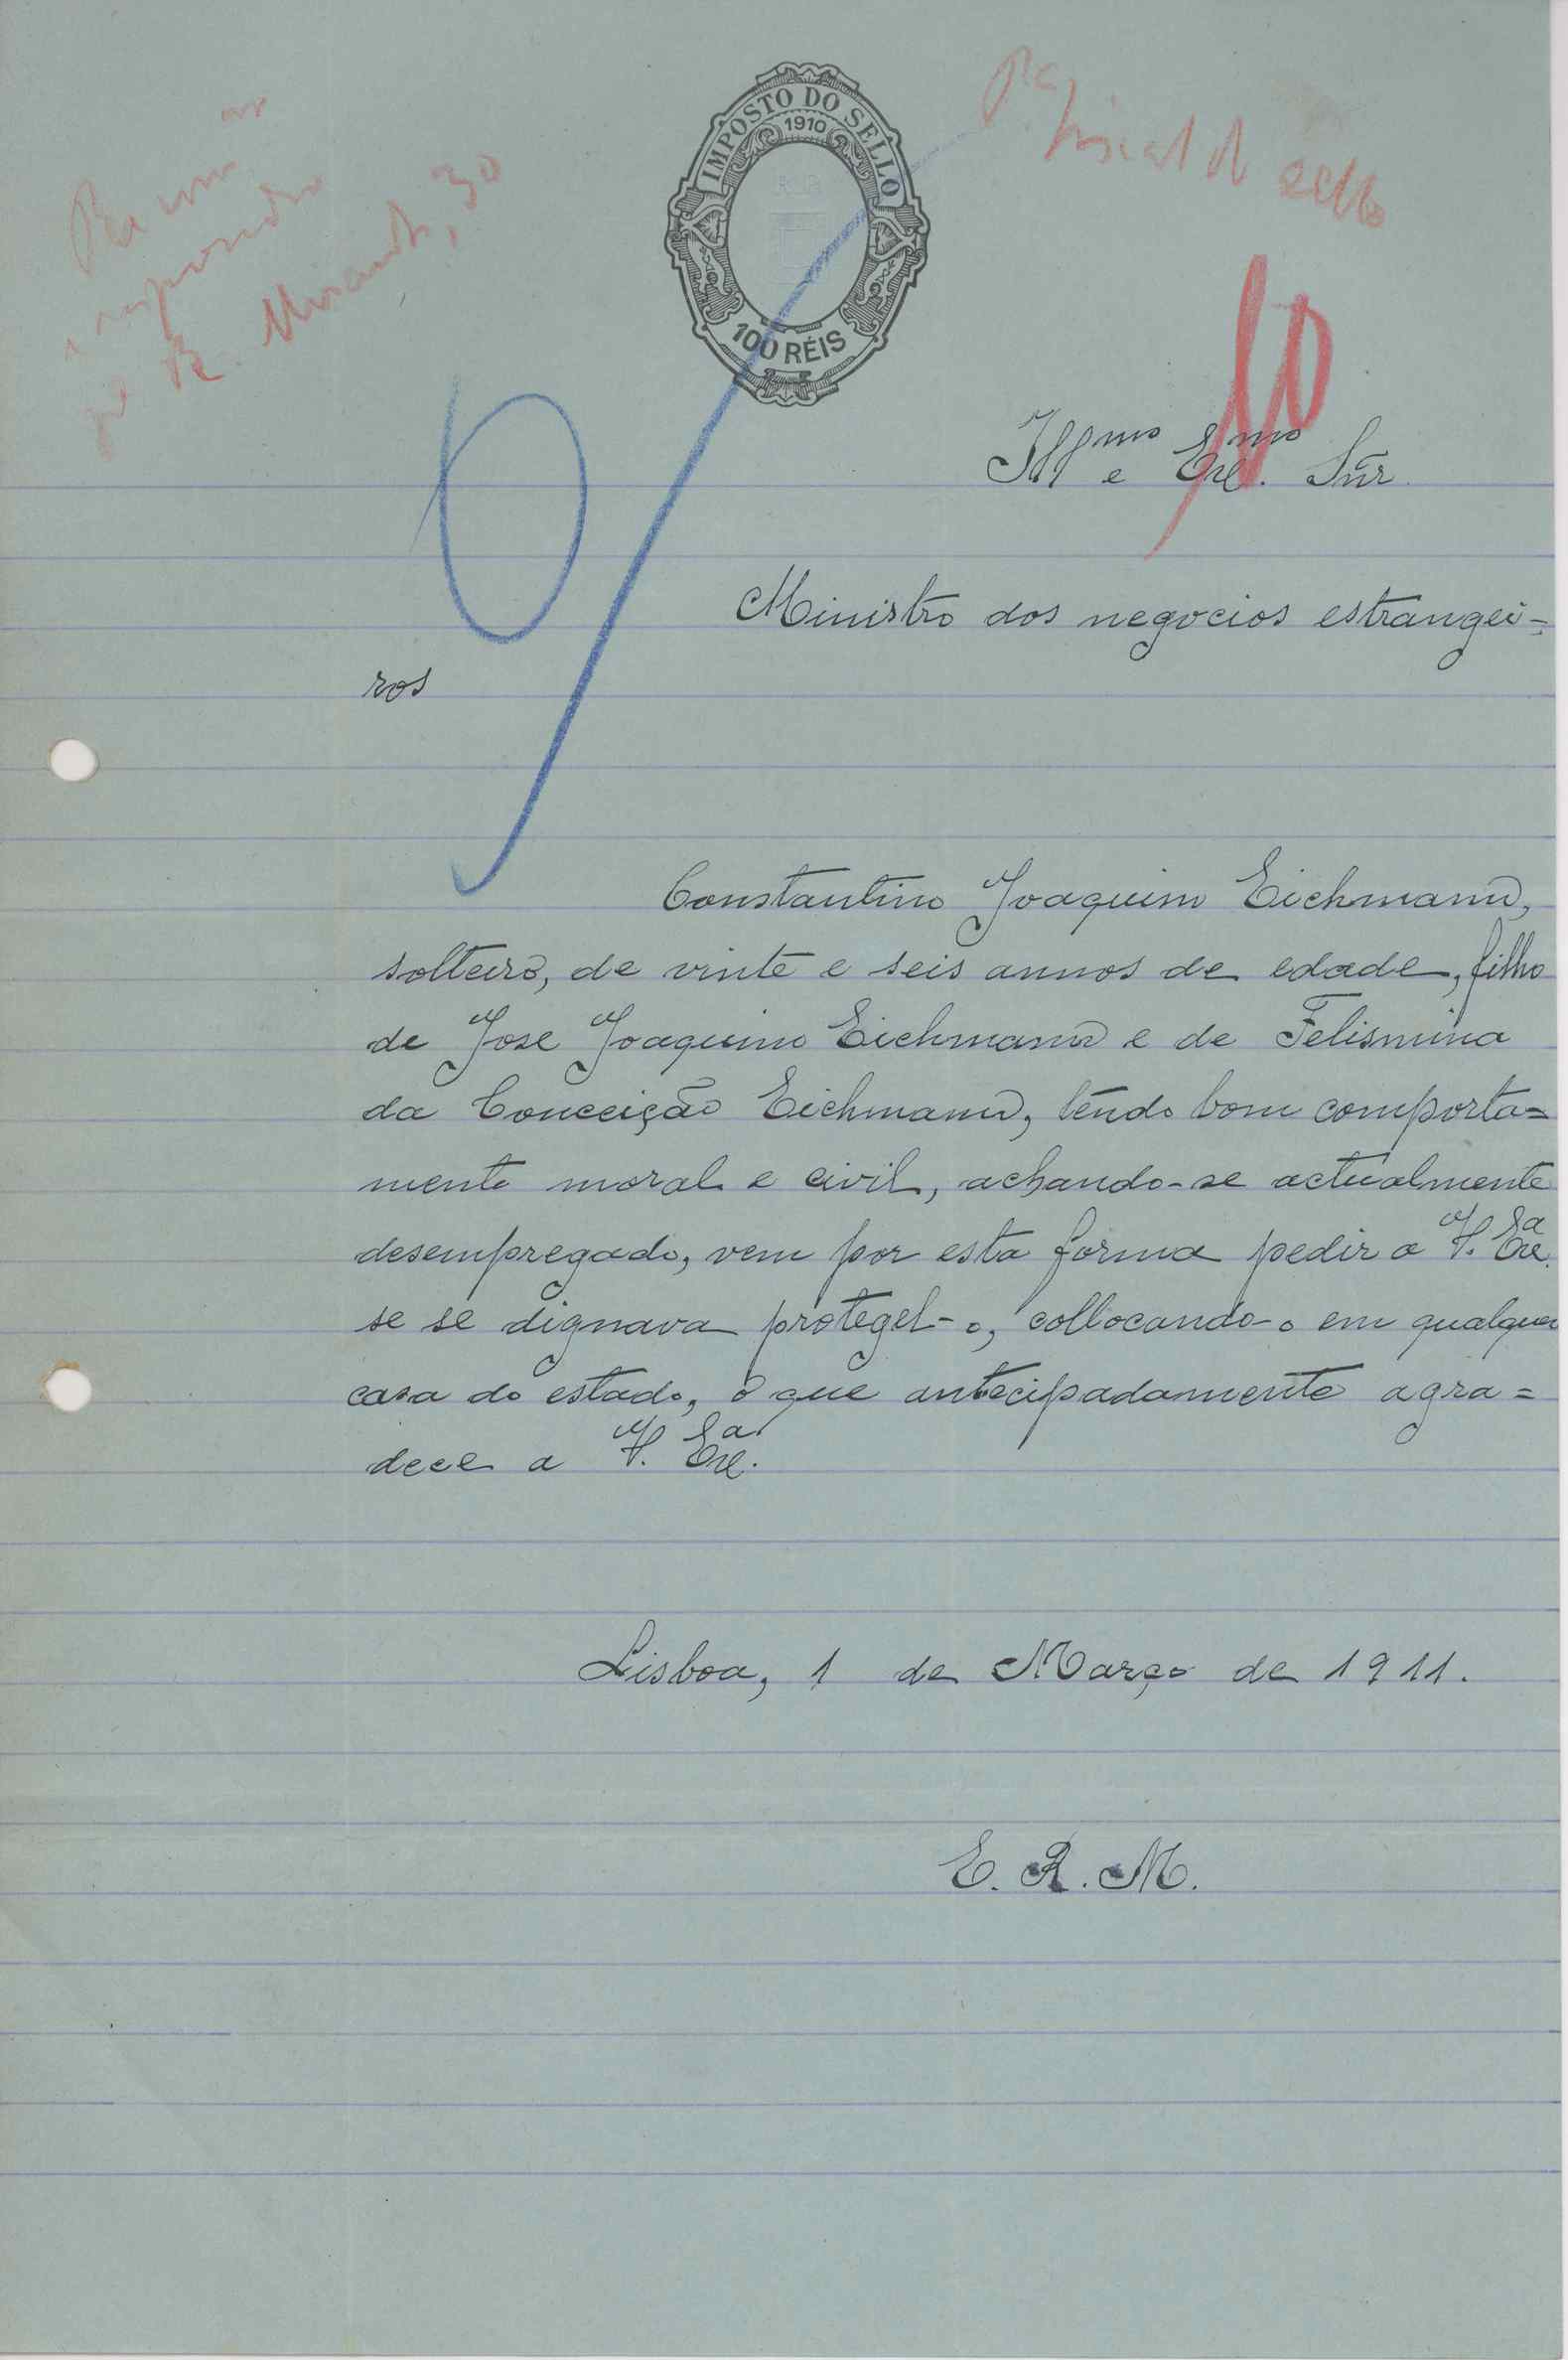 IMPOSTO DO SELLO
1910
100 RÉIS
sello
30
Illmo e Excmo. Snr.
Ministro dos negocios estrangei-
ros
Constantino Joaquim Eichmann,
solteiro, de vinte e seis annos de edade, filho
de Jose Joaquim Eichmann e de Felismina
da Conceição Eichmann, tendo bom comporta=
mento moral e civil, achando-se actualmente
desempregado, vem por esta forma pedir a V. Exca.
se se dignava protegel-o, collocando-o em qualquer
casa do estado, o que antecipadamente agra=
dece a V. Exca.
Lisboa, 1 de Março de 1911.
E. R. M.